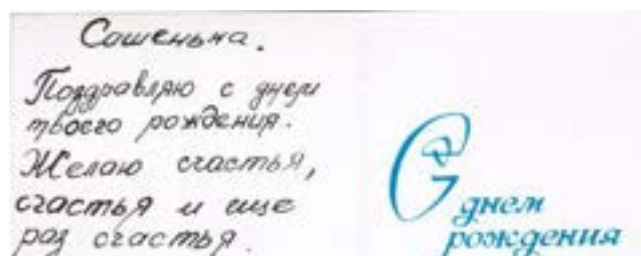 Сашенька.
Поздравляю с днем
твоего рождения.
Желаю счастья,
счастья и еще
раз счастья.
С днем
рождения